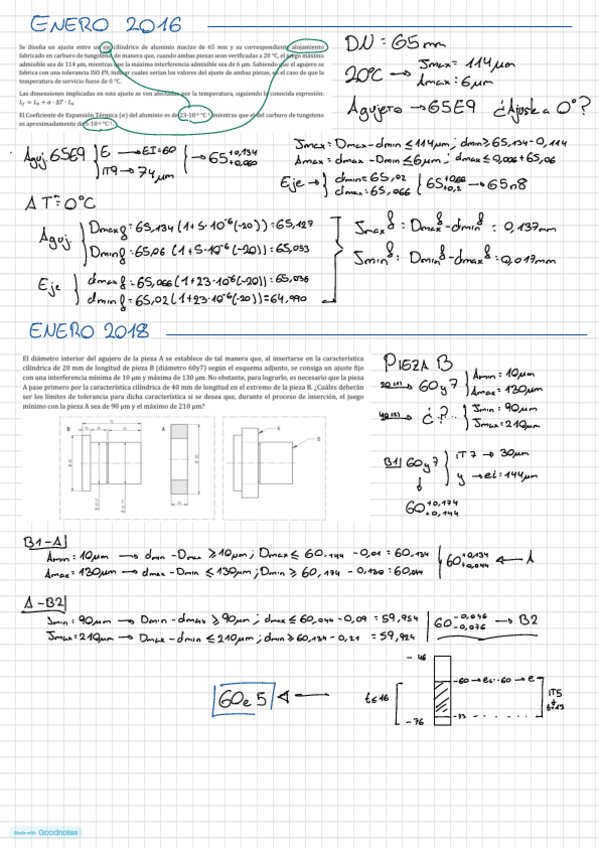 ENERO 2016
Se diseña un ajuste entre un eje cilíndrico de aluminio macizo de 65 mm y su correspondiente alojamiento
fabricado en carburo de tungsteno, de manera que, cuando ambas piezas sean verificadas a 20 °C, el juego máximo
admisible sea de 114 µm, mientras que la máxima interferencia admisible sea de 6 µm. Sabiendo que el agujero se
fabrica con una tolerancia ISO E9, indicar cuales serían los valores del ajuste de ambas piezas, en el caso de que la
temperatura de servicio fuese de 0 °C.
Las dimensiones implicadas en este ajuste se ven afectadas por la temperatura, siguiendo la conocida expresión:
L_f = L_0 + α · ΔT · L_0
El Coeficiente de Expansión Térmica (α) del aluminio es de 23·10⁻⁶ °C⁻¹, mientras que el del carburo de tungsteno
es aproximadamente de 5·10⁻⁶ °C⁻¹.
DN: 65 mm
20°C → Jmax: 114 µm
Amax: 6 µm
Agujero → 65E9 ¿Ajuste a 0°?
Aguj 65E9 E → EI=60
IT9 → 74 µm
→ 65 +0,134 +0,060
Jmax = Dmax - dmin ≤ 114 µm; dmin ≥ 65,134 - 0,114
Amax = dmax - Dmin ≤ 6 µm; dmax ≤ 0,006 + 65,06
Eje → dmin = 65,02
dmax = 65,066
→ 65n8
A T = 0°C
Aguj Dmaxf = 65,134 (1+5·10⁻⁶(-20)) = 65,127
Dminf = 65,06 (1+5·10⁻⁶(-20)) = 65,053
Eje dmaxf = 65,066 (1+23·10⁻⁶(-20)) = 65,036
dminf = 65,02 (1+23·10⁻⁶(-20)) = 64,990
Jmaxf: Dmaxf - dminf: 0,137 mm
Jminf: Dminf - dmaxf: 0,017 mm
ENERO 2018
El diámetro interior del agujero de la pieza A se establece de tal manera que, al insertarse en la característica
cilíndrica de 20 mm de longitud de pieza B (diámetro 60y7) según el esquema adjunto, se consiga un ajuste fijo
con una interferencia mínima de 10 µm y máxima de 130 µm. No obstante, para lograrlo, es necesario que la pieza
A pase primero por la característica cilíndrica de 40 mm de longitud en el extremo de la pieza B. ¿Cuáles deberán
ser los límites de tolerancia para dicha característica si se desea que, durante el proceso de inserción, el juego
mínimo con la pieza A sea de 90 µm y el máximo de 210 µm?
PIEZA B
→ 60y7 Amin: 10 µm
Amax: 130 µm
→ ¿?.. Jmin: 90 µm
Jmax: 210 µm
B A
A
B
B1| 60y7 IT7 → 30 µm
y → ei: 144 µm
60 +0,174 +0,144
B1-A
Amin: 10 µm → dmin - Dmax ≥ 10 µm; Dmax ≤ 60,144 - 0,01 = 60,134
Amax = 130 µm → dmax - Dmin ≤ 130 µm; Dmin ≥ 60,174 - 0,130 = 60,044
60 +0,134 +0,044 ← A
A-B2
Jmin: 90 µm → Dmin - dmax ≥ 90 µm; dmax ≤ 60,044 - 0,09 = 59,954
Jmax = 210 µm → Dmax - dmin ≤ 210 µm; dmin ≥ 60,134 - 0,21 = 59,924
60 -0,046 -0,076 → B2
- 46
60e5 ←
-60 → es: -60 → e
IT5
-73
- 76
Made with Goodnotes